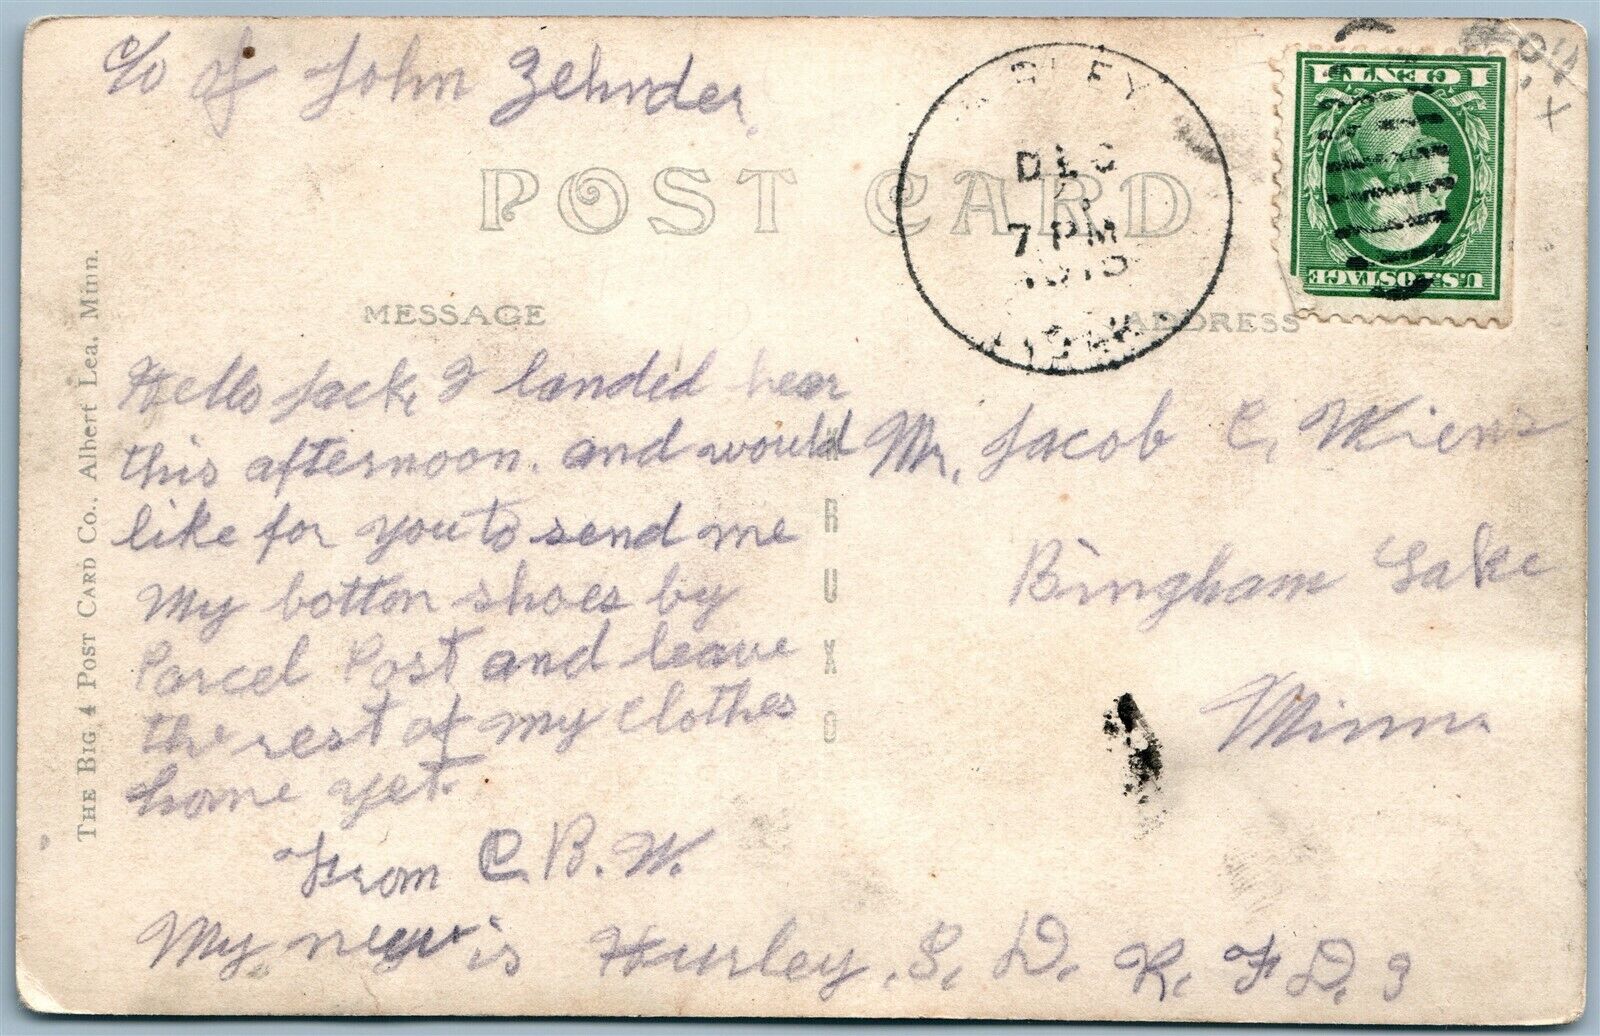 c/o of John Zehnder.
POST CARD
MESSAGE
ADDRESS
Hello Jack, I landed hear
this afternoon. and would
like for you to send me
My botton shoes by
Parcel Post and leave
the rest of my clothes
home yet.
From C. B. W.
My new is Hurley, S. D. R. F. D. 3
Mr. Jacob C. Wiens
Bingham Lake
Minn.
THE BIG 4 POST CARD CO., Albert Lea, Minn.
KRUXO
DEC
7 PM
1 CENT 1
U.S. POSTAGE